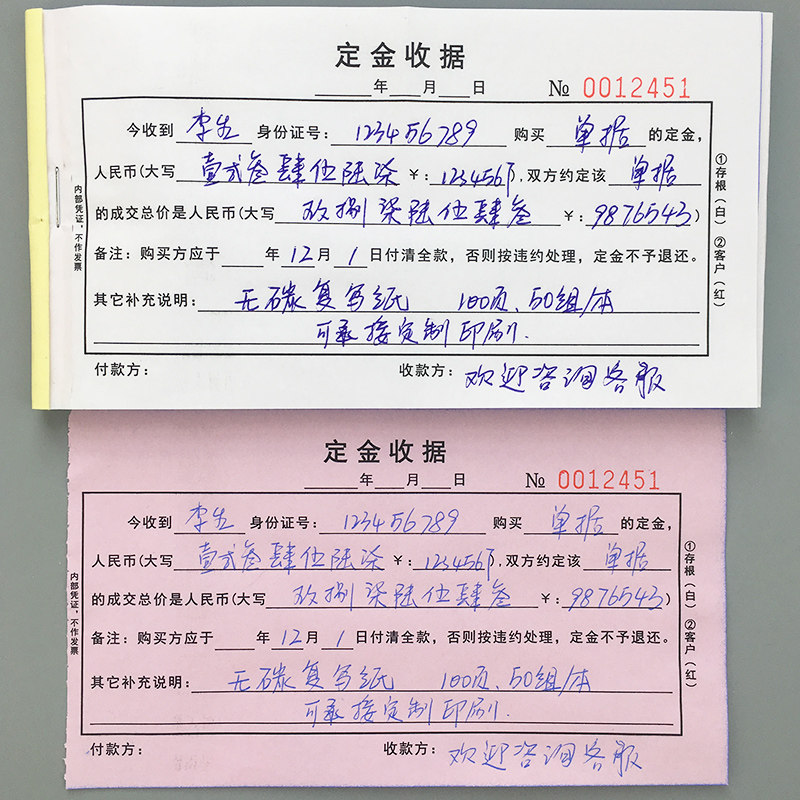 定金收据
年 月 日 № 0012451
今收到 李生 身份证号: 123456789 购买 单据 的定金,
人民币(大写 壹弍叁肆伍陆柒 ¥: 1234567, 双方约定该 单据
的成交总价是人民币(大写 玖捌柒陆伍肆叁 ¥: 9876543)
备注: 购买方应于 年 12 月 1 日付清全款, 否则按违约处理, 定金不予退还。
其它补充说明: 无碳复写纸 100页、50组/本
可承接定制印刷.
付款方: 收款方: 欢迎咨询客服
内部凭证,不作发票
①存根(白) ②客户(红)
定金收据
年 月 日 № 0012451
今收到 李生 身份证号: 123456789 购买 单据 的定金,
人民币(大写 壹弍叁肆伍陆柒 ¥: 1234567, 双方约定该 单据
的成交总价是人民币(大写 玖捌柒陆伍肆叁 ¥: 9876543)
备注: 购买方应于 年 12 月 1 日付清全款, 否则按违约处理, 定金不予退还。
其它补充说明: 无碳复写纸 100页、50组/本
可承接定制印刷.
付款方: 收款方: 欢迎咨询客服
内部凭证,不作发票
①存根(白) ②客户(红)